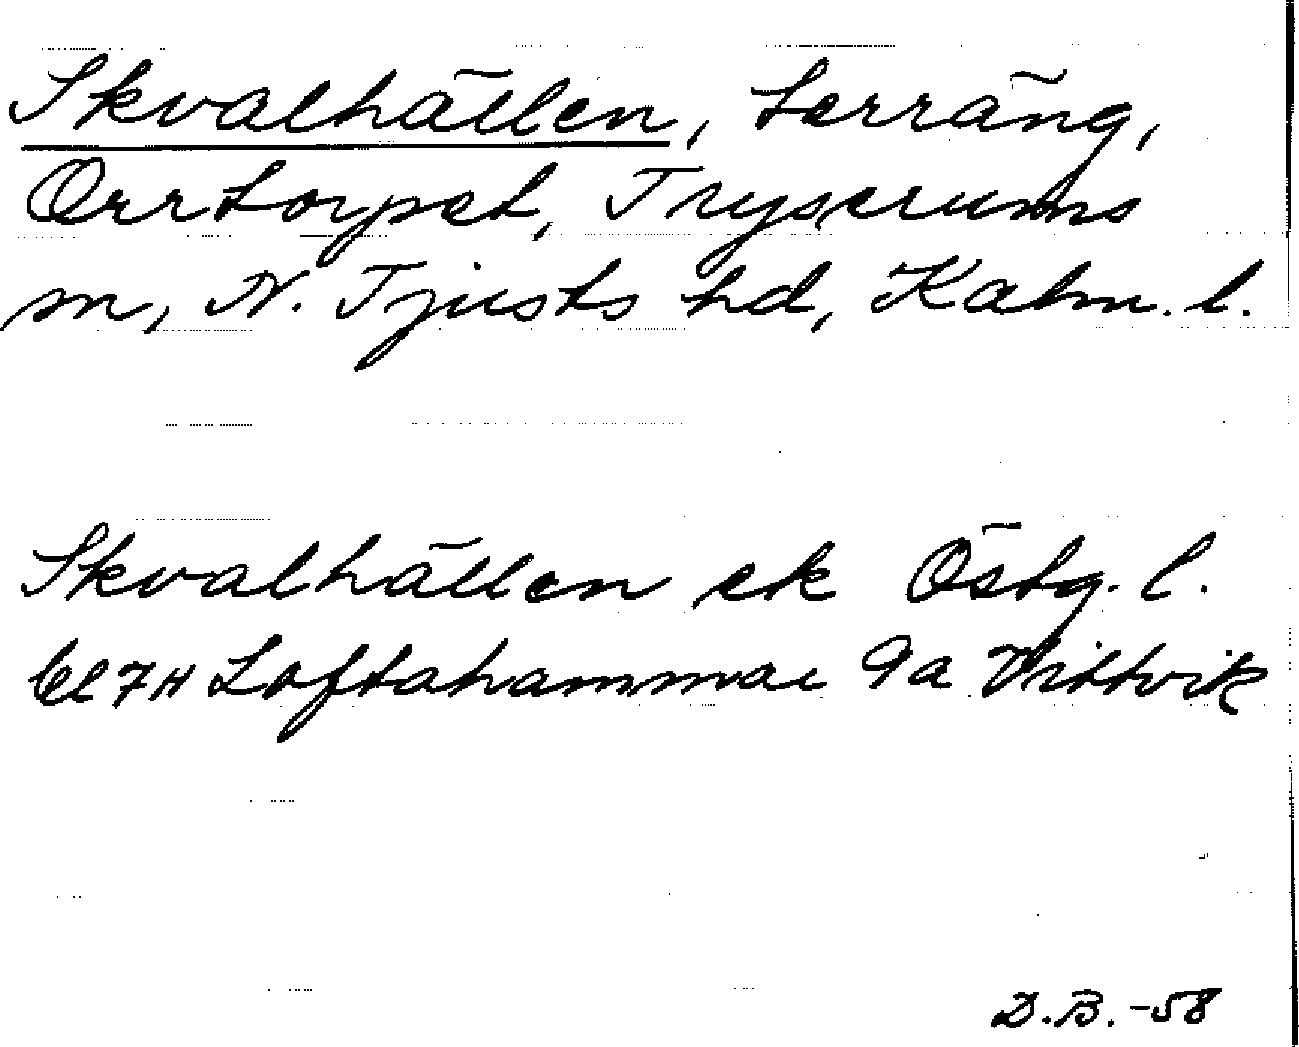 Skvalhällen, terräng,
Orrtorpet, Tryserums
sn, N. Tjusts hd, Kalm. l.
Skvalhällen ek Östg. l.
bl 7H Loftahammar 9a Vittvik
D.B. -58